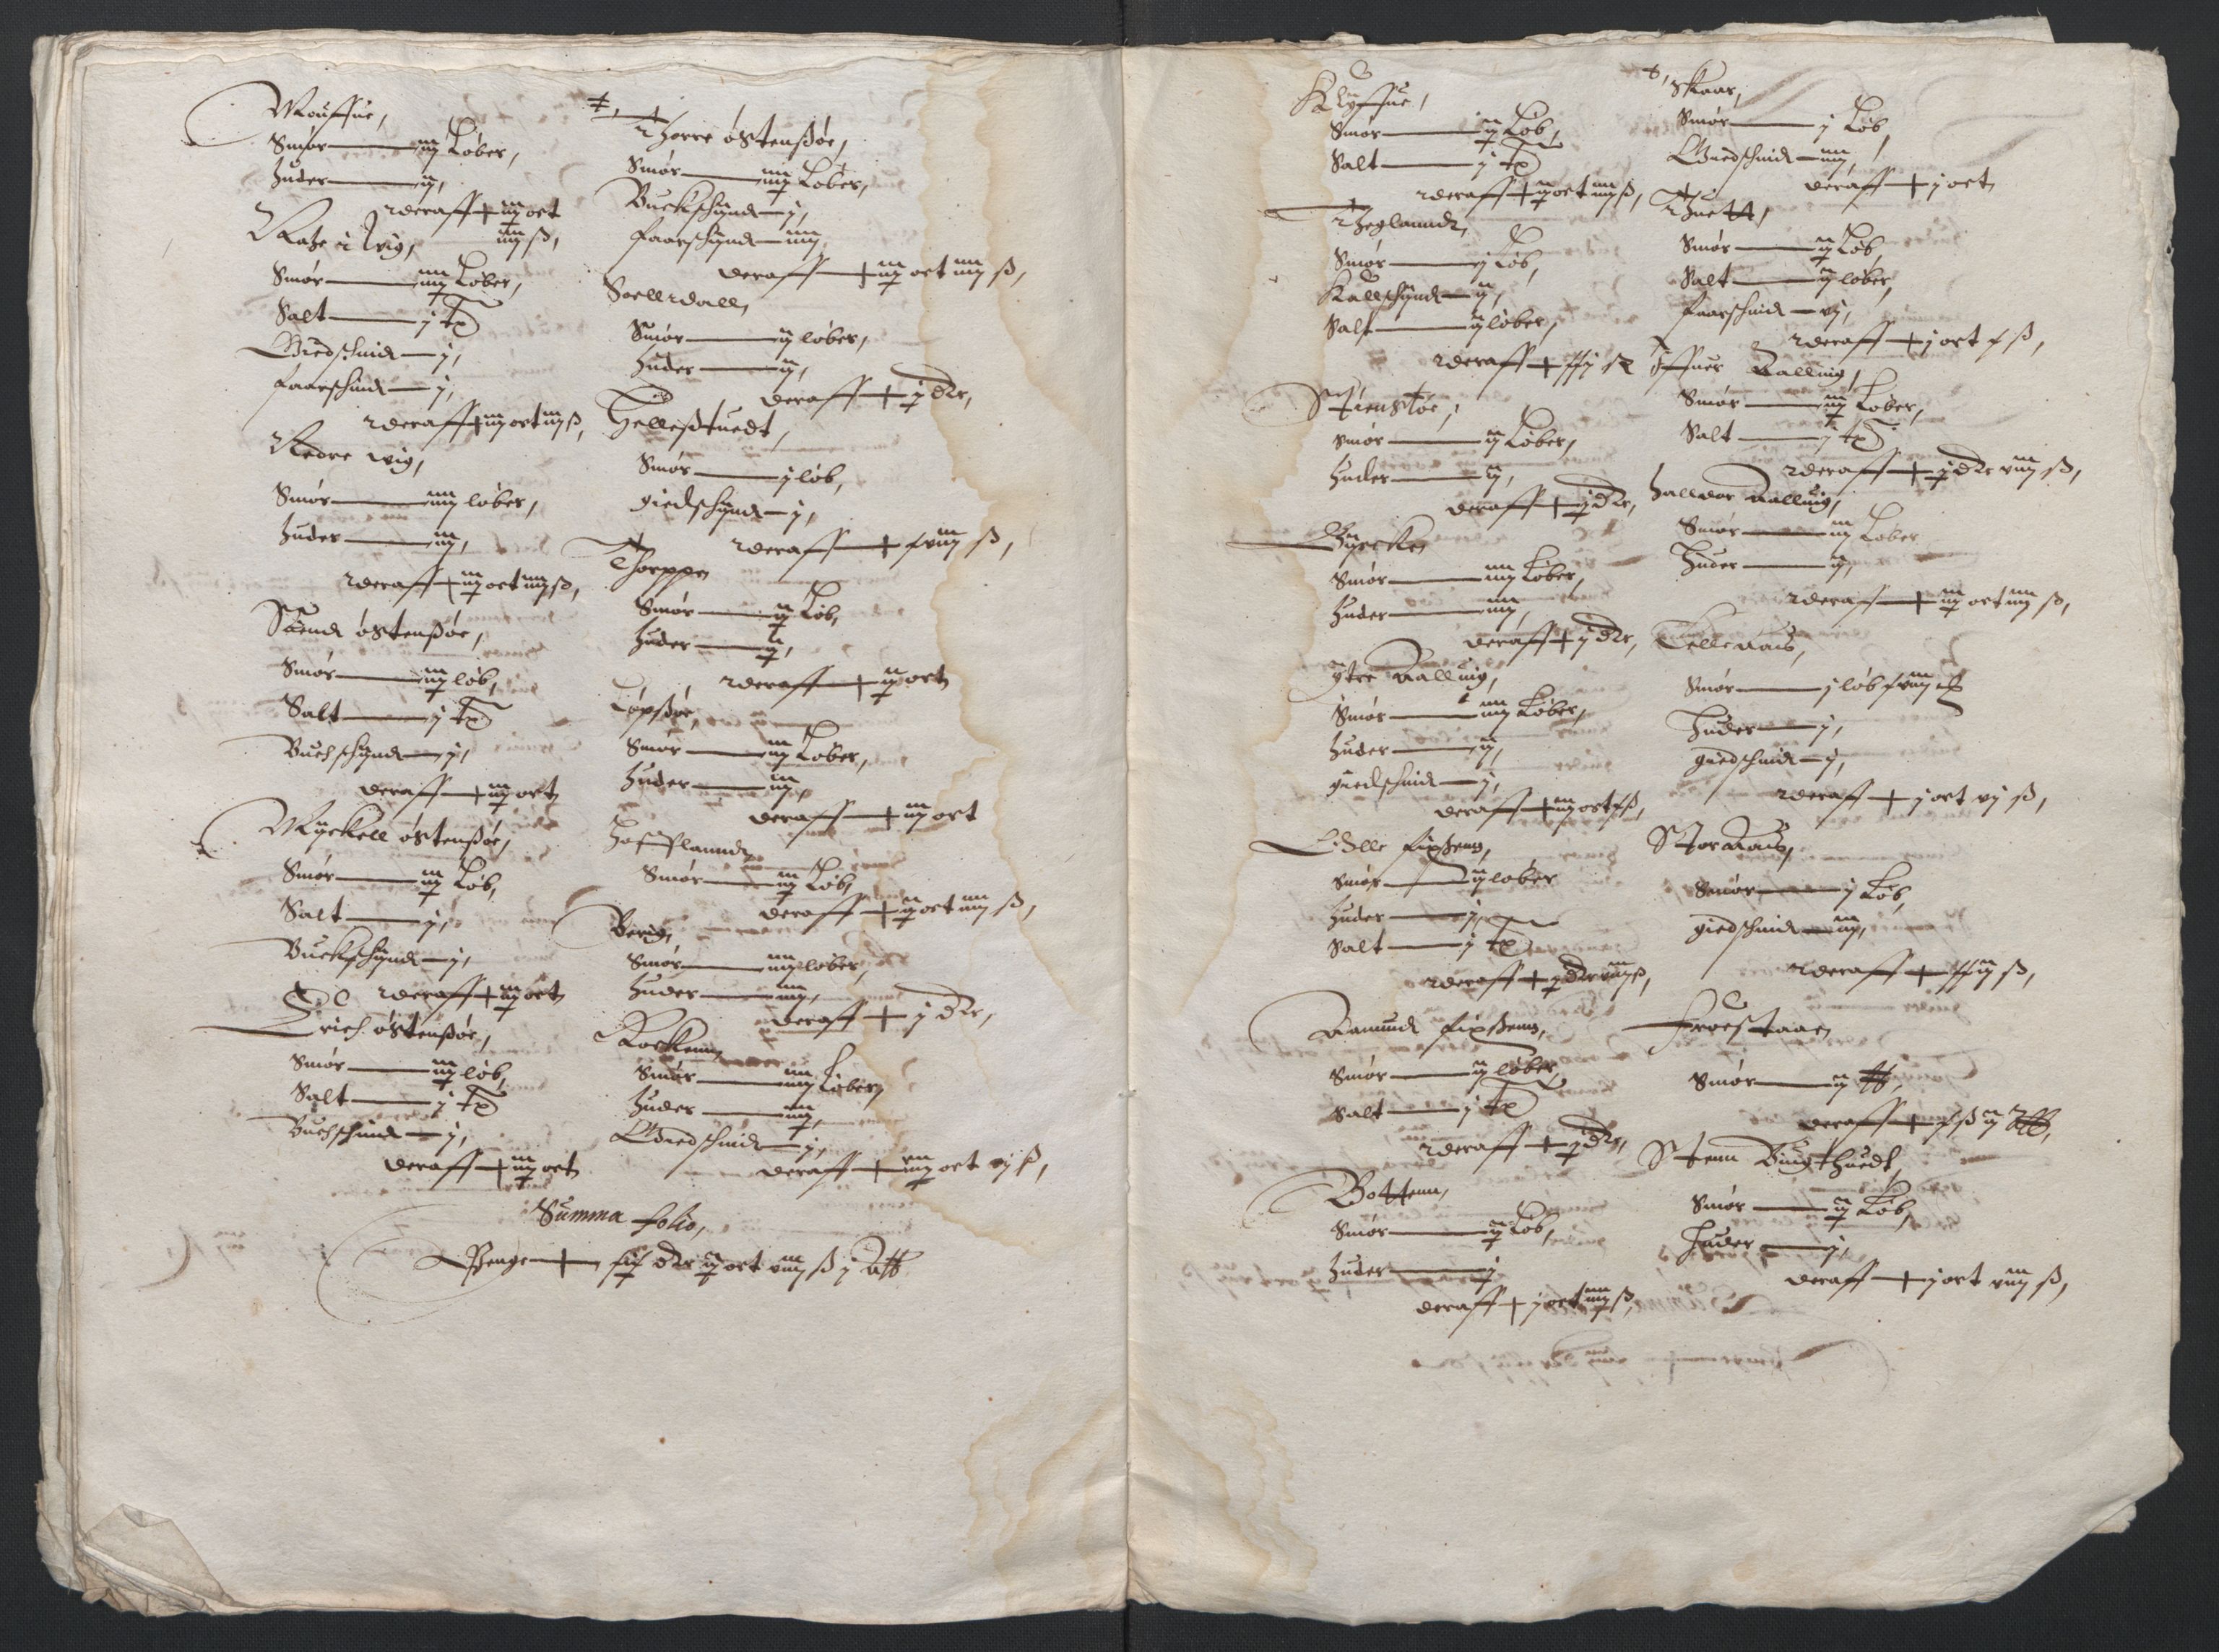 Mouffue,
Smør — iij Løber,
Huder — ij,
deraff + iij ort
iiij ß,
i Wig,
Smør — iiij Løber,
Salt — j tø
Giedschind — j,
faarschind — j,
deraff + iij ort iij ß,
Nedre Wig,
Smør — iiij løber,
Huder — iij,
deraff + iij ort iiij ß,
Suend østensøe,
Smør — iij løb,
Salt — j tø
Buchschynd — j,
deraff + iij ort
Myckell østensøe,
Smør — iij Løb,
Salt — j,
Buckschynd — j,
deraff + iij ort
Erich østensøe,
Smør — iij løb,
Salt — j tø
Buchschind — j,
deraff + iij ort
Thorre østensøe,
Smør — iiij Løber,
Buckschynd — j,
faarschynd — iiij
deraff + iij ort iiij ß,
Soelludall,
Smør — ij løber,
Huder — ij,
deraff + j dlr,
Hellestuedt,
Smør — j løb,
giedschynd — j,
deraff + xviij ß,
Thorppe,
Smør — ij Løb,
Huder — ij,
deraff + ij ort
Løpsøe,
Smør — iij Løber,
Huder — iij,
deraff + iij ort
Hoffland,
Smør — iij Løb,
deraff + ij ort iiij ß,
Berig,
Smør — iiij løber,
Huder — iiij,
deraff + j dlr,
Rockenn,
Smør — iiij Løber,
Huder — iiij,
Giedschind — j,
deraff + iiij ort vj ß,
Summa folio,
Penge + dlr ij ort viij ß j alb
Klyffue,
Smør — ij Løb,
Salt — j tø
deraff + ij ort iiij ß,
Theglannd,
Smør — j Løb,
Kallschynd — ij,
Salt — ij løber,
deraff + xxj sk
Stienstøe,
Smør — ij Løber,
Huder — ij,
deraff + j dlr,
Byrcke,
Smør — iiij Løber,
Huder — iiij,
deraff + j dlr,
ytre Aalluig,
Smør — iiij Løber,
Huder — ij,
giedschind — j,
deraff + iij ort x ß,
Edlle fixsenn,
Smør — ij løber
Huder — j,
Salt — j tø
deraff + j dlr viij ß,
Aamund fixsenn,
Smør — ij løber,
Salt — j tø
deraff + j dlr,
Bottenn,
Smør — ij Løb,
Huder — j
deraff + j ort iiij ß,
Skaar,
Smør — j Løb,
Giedschind — iiij,
deraff + j ort
Thuett,
Smør — ij Løb,
Salt — ij løber,
faarschind — vj,
deraff + j ort x ß,
Iffuer Aalluig,
Smør — iij Løber,
Salt — j tø
deraff + j dlr viij ß,
Halluor Aalluig,
Smør — iij Løber
Huder — ij,
deraff + iij ort iiij ß,
Lille Aas,
Smør — j løb xviij
Huder — j,
giedschind — j,
deraff + j ort vj ß,
Stor Aas,
Smør — j Løb,
giedschind — iij,
deraff + xxij ß,
Froestaae,
Smør — ij,
deraff + x ß ij alb,
Stenn Bingthuedt,
Smør — ij Løb,
Huder — j,
deraff + j ort viij ß,